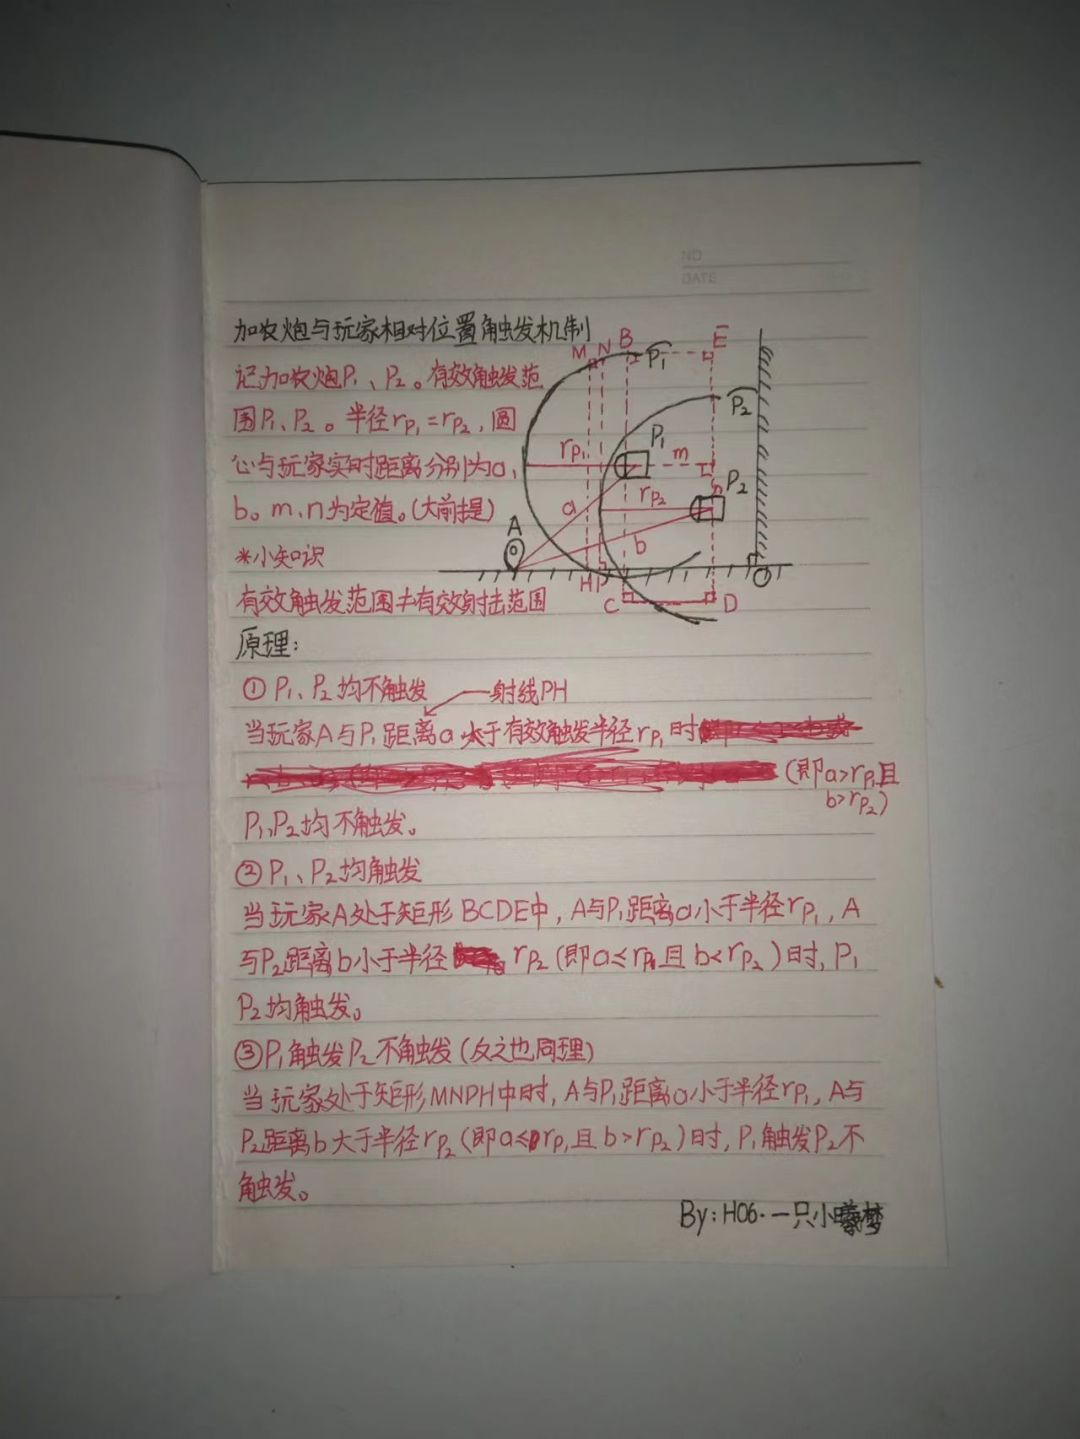 NO
DATE
加农炮与玩家相对位置触发机制
记加农炮P₁、P₂。有效触发范
围P₁、P₂。半径rp₁=rp₂,圆
心与玩家实时距离分别为a,
b。m、n为定值。(大前提)
*小知识
有效触发范围≠有效射击范围
M N B P₁ E
P₂
rp₁ P₁ m
a rp₂ n P₂
A b
H P
C D
原理:
①P₁、P₂均不触发 射线PH
当玩家A与P₁距离a大于有效触发半径rp₁时
(即a>rp₁且
b>rp₂)
P₁、P₂均不触发。
②P₁、P₂均触发
当玩家A处于矩形BCDE中,A与P₁距离a小于半径rp₁,A
与P₂距离b小于半径 rp₂(即a≤rp₁且b<rp₂)时,P₁
P₂均触发。
③P₁触发P₂不触发(反之也同理)
当玩家处于矩形MNPH中时,A与P₁距离a小于半径rp₁,A与
P₂距离b大于半径rp₂(即a≤rp₁且b>rp₂)时,P₁触发P₂不
触发。
By:H06·一只小曦梦